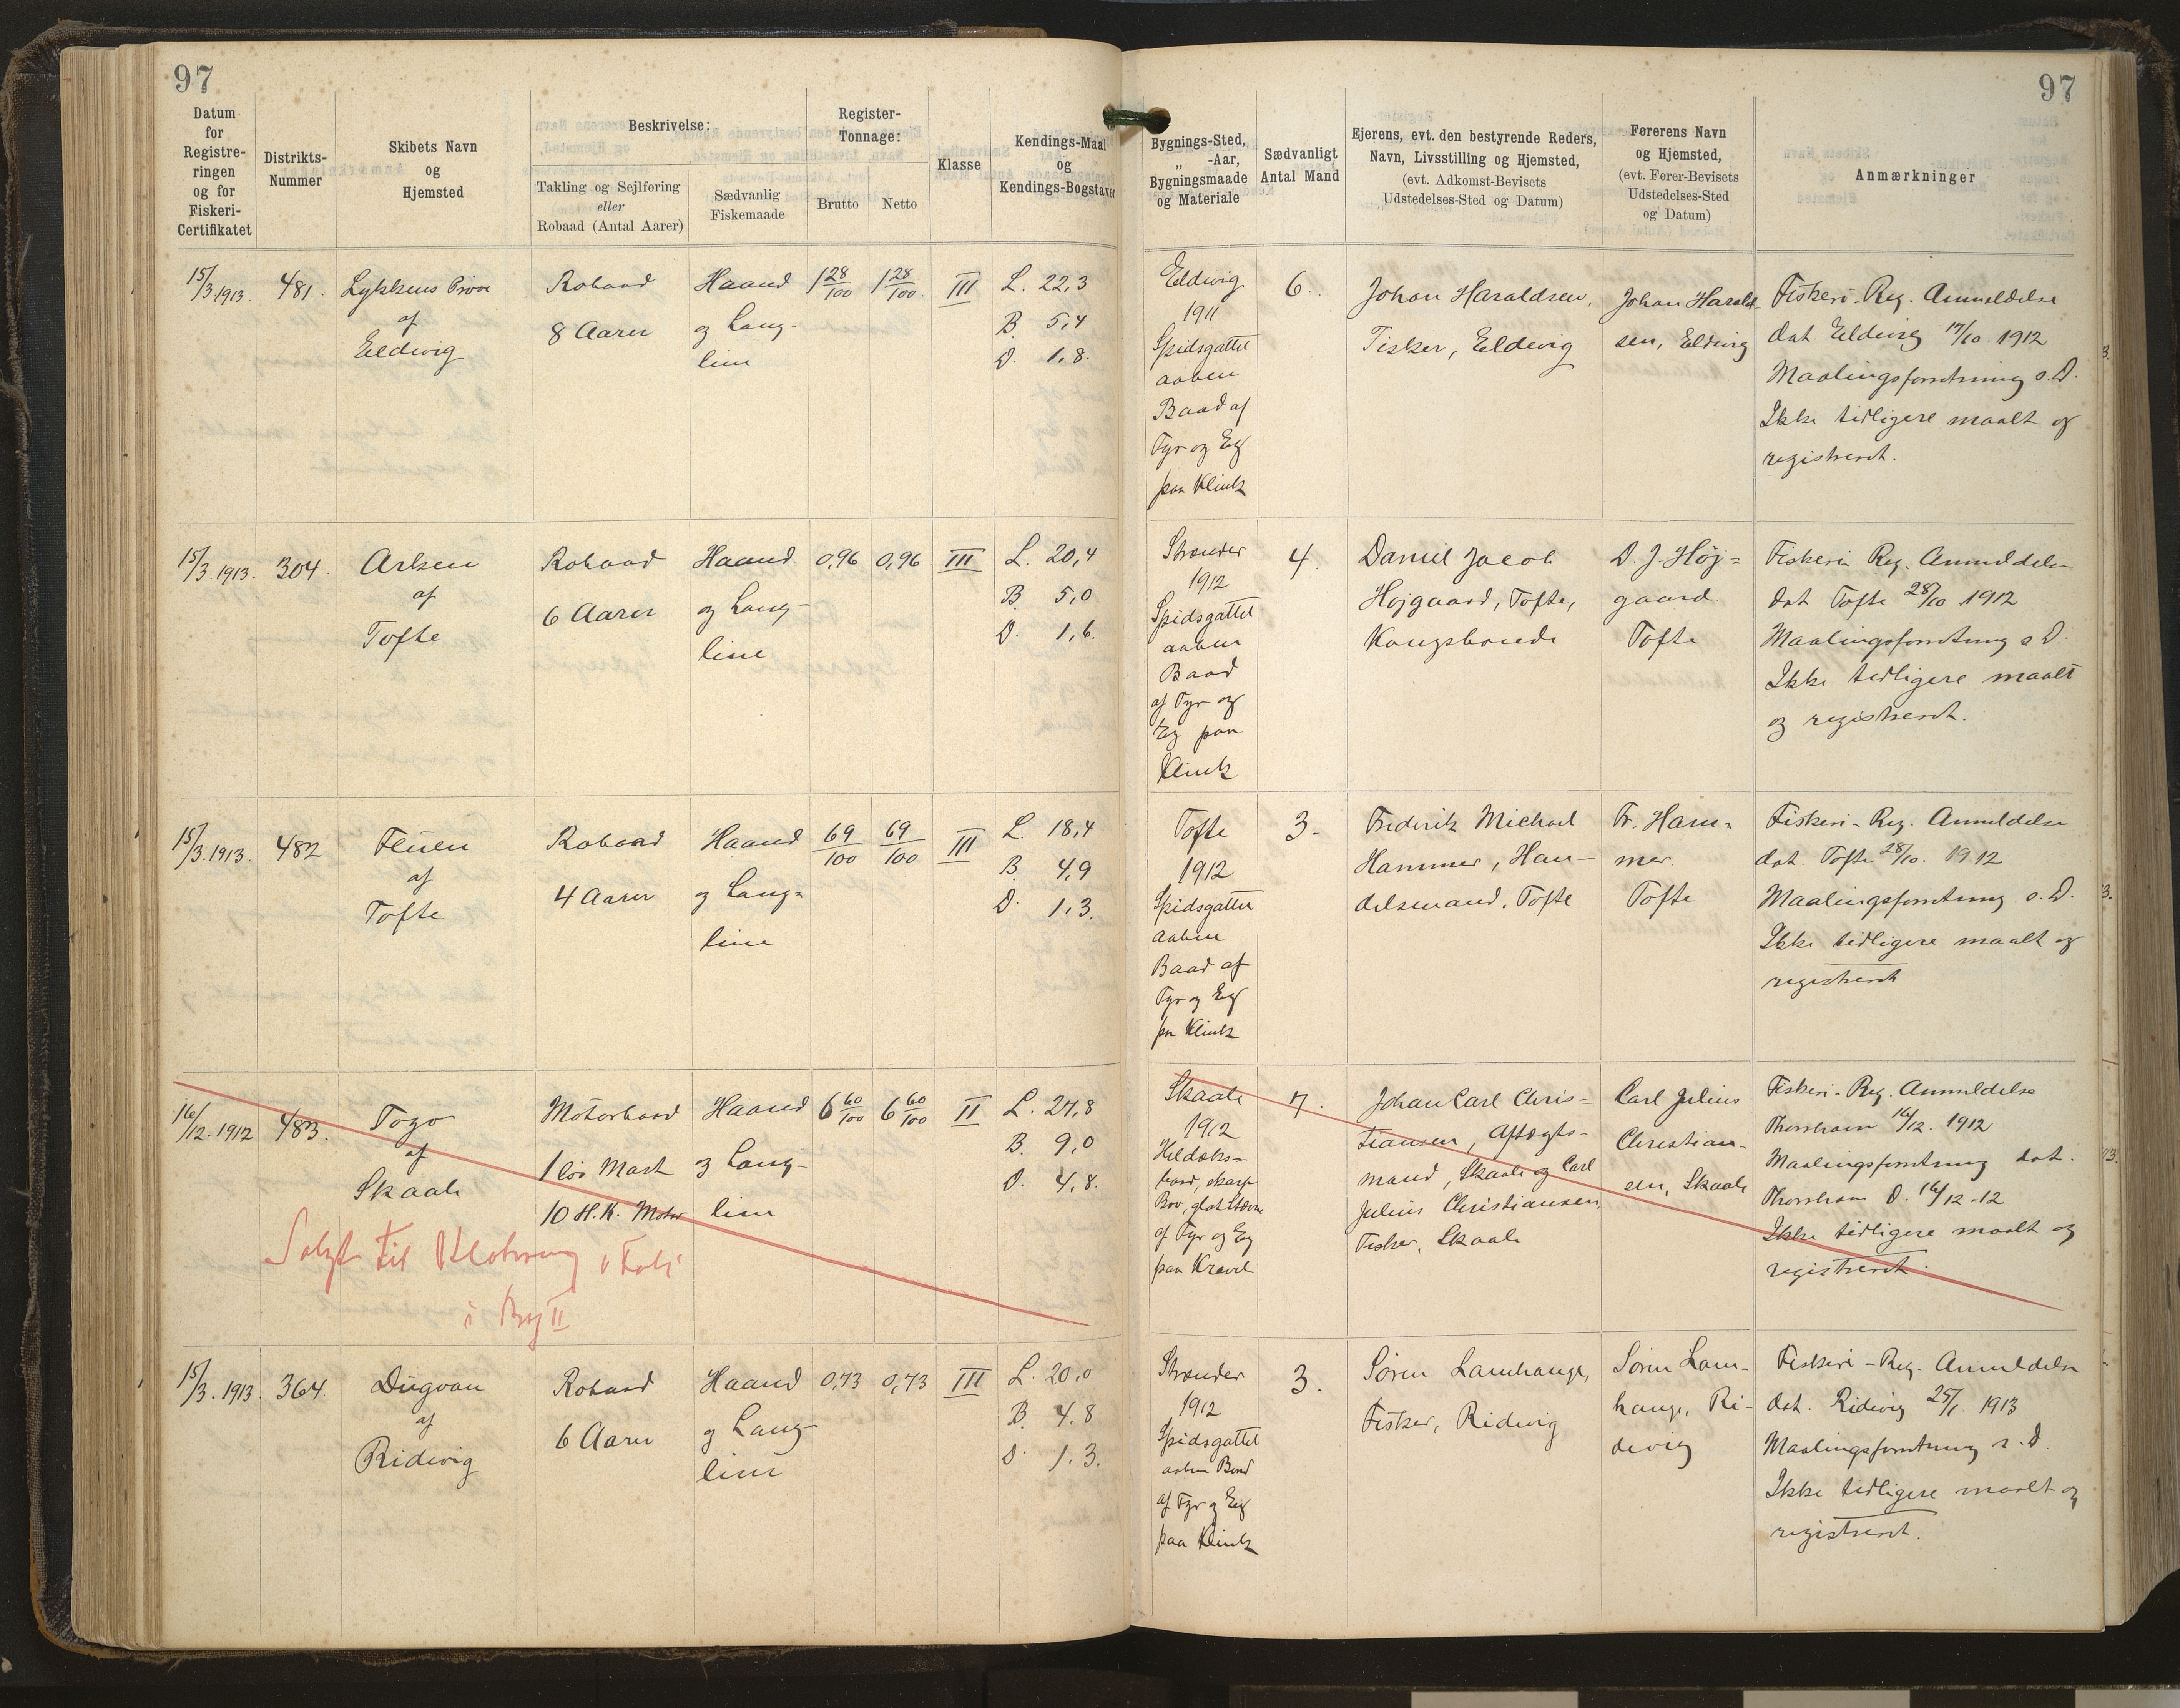 97
97
Datum
for
Registre-
ringen
og for
Fiskeri-
Certifikatet
Distrikts-
Nummer
Skibets Navn
og
Hjemsted
Beskrivelse:
Takling og Sejlføring
eller
Robaad (Antal Aarer)
Sædvanlig
Fiskemaade
Register-
Tonnage:
Brutto
Netto
Klasse
Kendings-Maal
og
Kendings-Bogstaver
Bygnings-Sted,
„ -Aar,
Bygningsmaade
og Materiale
Sædvanligt
Antal Mand
Ejerens, evt. den bestyrende Reders,
Navn, Livsstilling og Hjemsted,
(evt. Adkomst-Bevisets
Udstedelses-Sted og Datum)
Førerens Navn
og Hjemsted,
(evt. Fører-Bevisets
Udstedelses-Sted
og Datum)
Anmærkninger
15/3 1913.
481.
Lykkens Prøve
af
Eldevig
Robaad
8 Aarer
Haand
og Lang-
line
1 28/100
1 28/100
III
L. 22,3
B. 5,4
D. 1,8.
Eldevig
1911
Spidsgattet
aaben
Baad af
Fyr og Eg
paa Klink
6.
Johan Haraldsen,
Fisker, Eldevig
Johan Harald-
sen, Eldevig
Fiskeri-Reg. Anmeldelse
dat. Eldevig 17/10. 1912
Maalingsforretning s. D.
Ikke tidligere maalt og
registreret.
15/3. 1913.
304
Arken
af
Tofte
Robaad
6 Aarer
Haand
og Lang-
line
0,96
0,96
III
L. 20,4
B. 5,0
D. 1,6.
Strænder
1912
Spidsgattet
aaben
Baad
af Fyr og
Eg paa
Klink
4.
Daniel Jacob
Højgaard, Tofte,
Kongsbonde
D. J. Høj=
gaard
Tofte
Fiskeri Reg. Anmeldelse
dat Tofte 28/10 1912
Maalingsforretning s D.
Ikke tidligere maalt
og registreret.
15/3. 1913.
482
af
Tofte
Robaad
4 Aarer
Haand
og Lang=
line
69/100
69/100
III
L. 18,4
B. 4,9
D. 1,3.
Tofte
1912
Spidsgattet
aaben
Baad af
Fyr og Eg
paa Klink
3.
Frederik Michael
Hammer, Han-
delsmand, Tofte
Fr. Ham=
mer.
Tofte
Fiskeri-Reg. Anmeldelse
dat. Tofte 28/10. 1912
Maalingsforretning s. D.
Ikke tidligere maalt og
registreret
16/12. 1912
483.
Togo
af
Skaale
Motorbaad
1 løs Mast
10 H.K. Motor
Haand
og Lang-
line
6 60/100
6 60/100
II
L. 27,8
B. 9,0
D. 4,8.
Solgt til
i Reg II
Skaale
1912
Heldæks-
baad, skarp
Bov, glat
af Fyr og Eg
paa Kravel
7.
Johan Carl Chris=
tiansen, Aftægts-
mand, Skaale og Carl
Julius Christiansen,
Fisker, Skaale
Carl Julius
Christian-
sen, Skaale
Fiskeri-Reg. Anmeldelse
Thorshavn 16/12. 1912
Maalingsforretning dat.
Thorshavn D. 16/12-12
Ikke tidligere maalt og
registreret.
15/3. 1913.
364.
Dugvan
af
Ridevig
Robaad
6 Aarer
Haand
og Lang-
line
0,73
0,73
III
L. 20,0
B. 4,8
D. 1.3.
Strænder
1912
Spidsgattet
aaben Baad
af Fyr og Eg
paa Klink
3.
Søren Lamhauge,
Fisker, Ridevig
Søren Lam-
hauge, Ri-
devig
Fiskeri-Reg. Anmeldelse
dat. Ridevig 25/1. 1913
Maalingsforretning s. D.
Ikke tidligere maalt og
registreret.